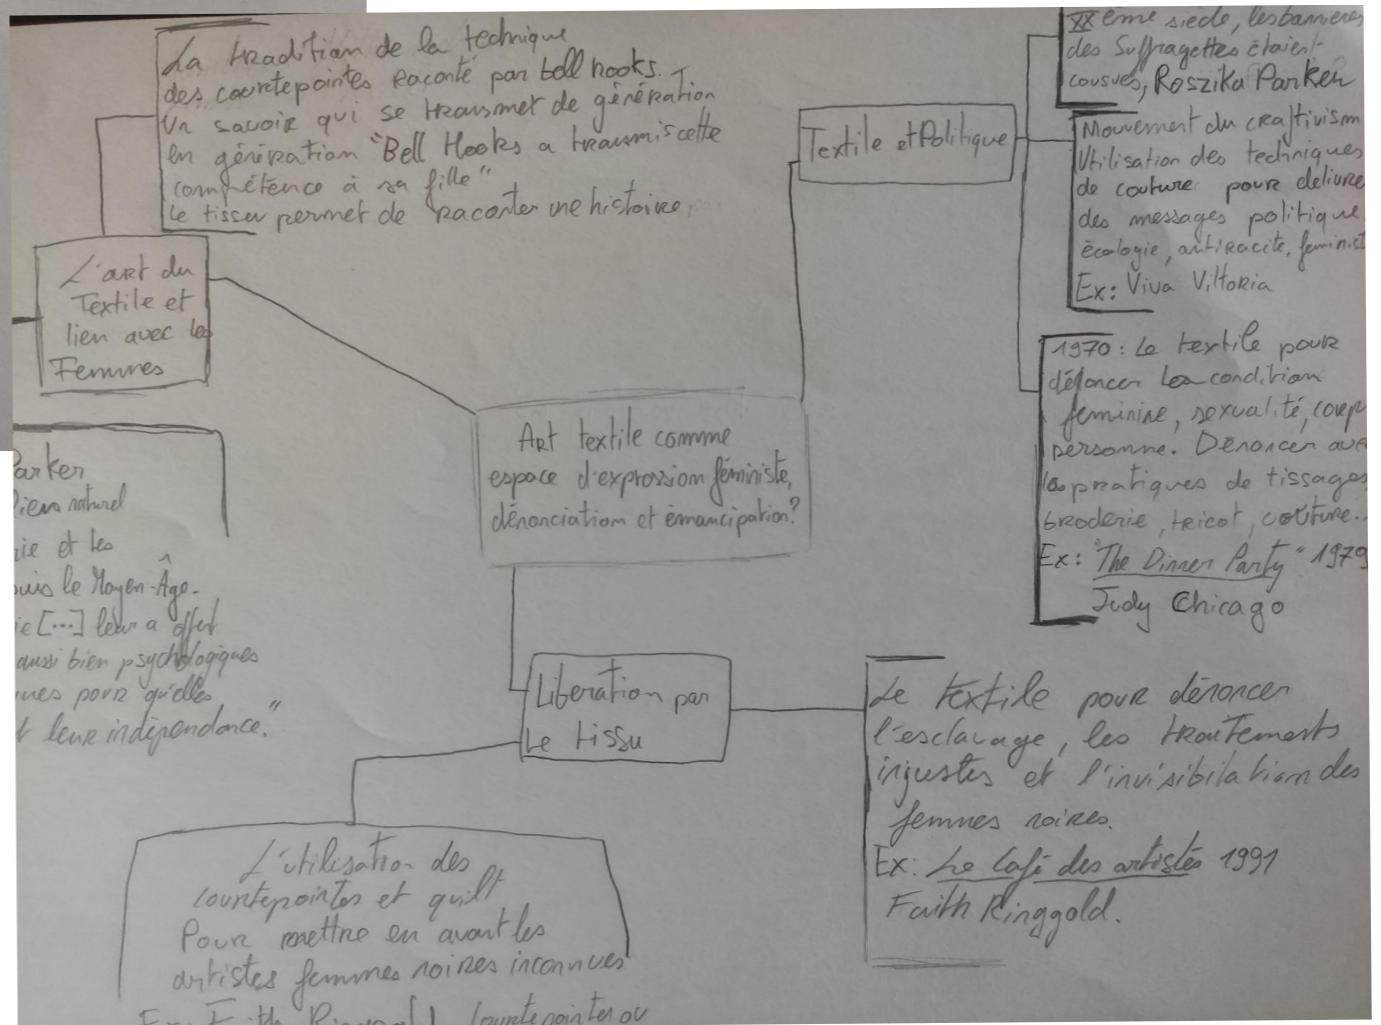 La tradition de la technique
des courtepointes raconté par bell hooks.
Un savoir qui se transmet de génération
en génération "Bell Hooks a transmis cette
compétence à sa fille"
Le tissu permet de raconter une histoire
L'art du
Textile et
lien avec les
Femmes
Parker
lien naturel
rie et les
uis le Moyen-Âge.
ie [...] leur a offert
aussi bien psychologiques
ques pour qu'elles
t leur indépendance."
Art textile comme
espace d'expression féministe,
dénonciation et émancipation?
Textile et Politique
XXème siècle, les bannières
des Suffragettes étaient
cousues, Roszika Parker
Mouvement du craftivism
Utilisation des techniques
de couture pour délivre
des messages politique
écologie, antiracite, feminist
Ex: Viva Vittoria
1970: Le textile pour
dénoncer les condition
feminine, sexualité, corp
personne. Dénoncer ave
les pratiques de tissages
broderie, tricot, coûture..
Ex: "The Dinner Party" 1979
Judy Chicago
Libération par
le tissu
Le textile pour dénoncer
l'esclavage, les traitements
injustes et l'invisibilation des
femmes noires.
Ex: Le Café des artistes 1991
Faith Ringgold.
L'utilisation des
courtepointes et quilt
Pour mettre en avant les
artistes femmes noires inconnues
Ex: Faith Ringgold courtepointes ou